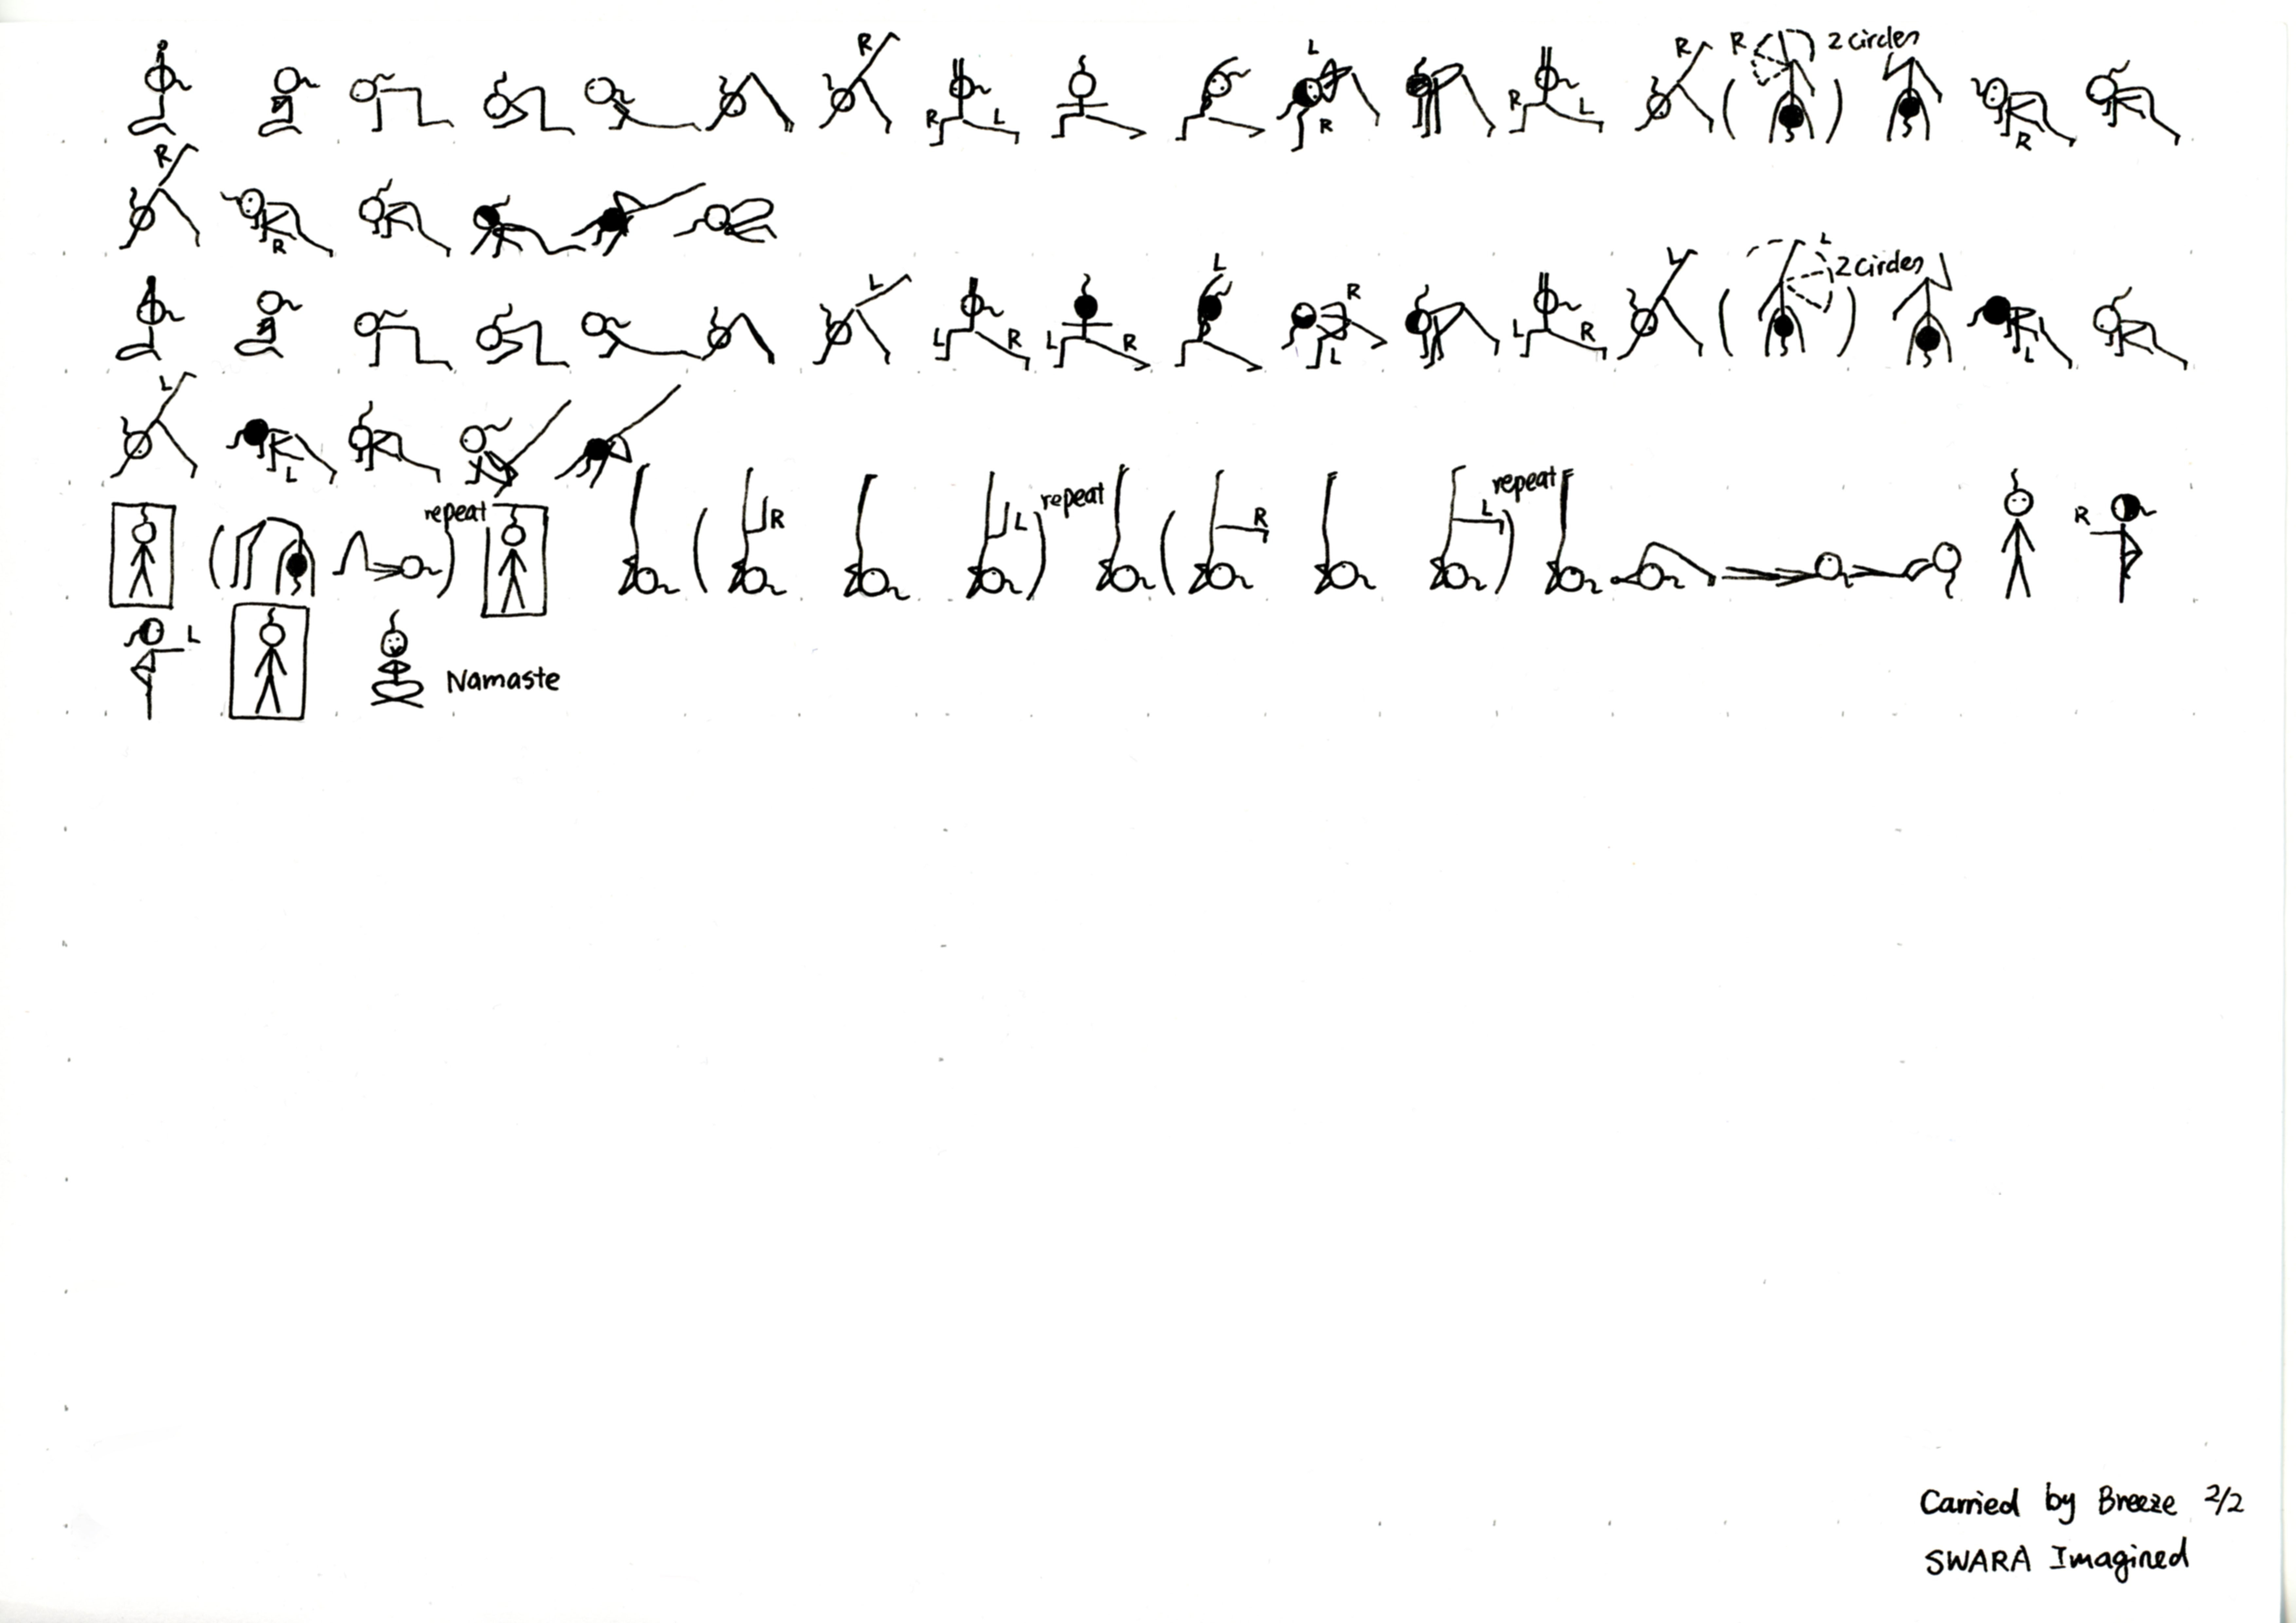 R R L L R R L R R 2 circles R
R R
L L R L R L R L L R L R L L 2 circles L
L L
repeat R L repeat R L repeat R
L Namaste
Carried by Breeze 2/2
SWARA Imagined